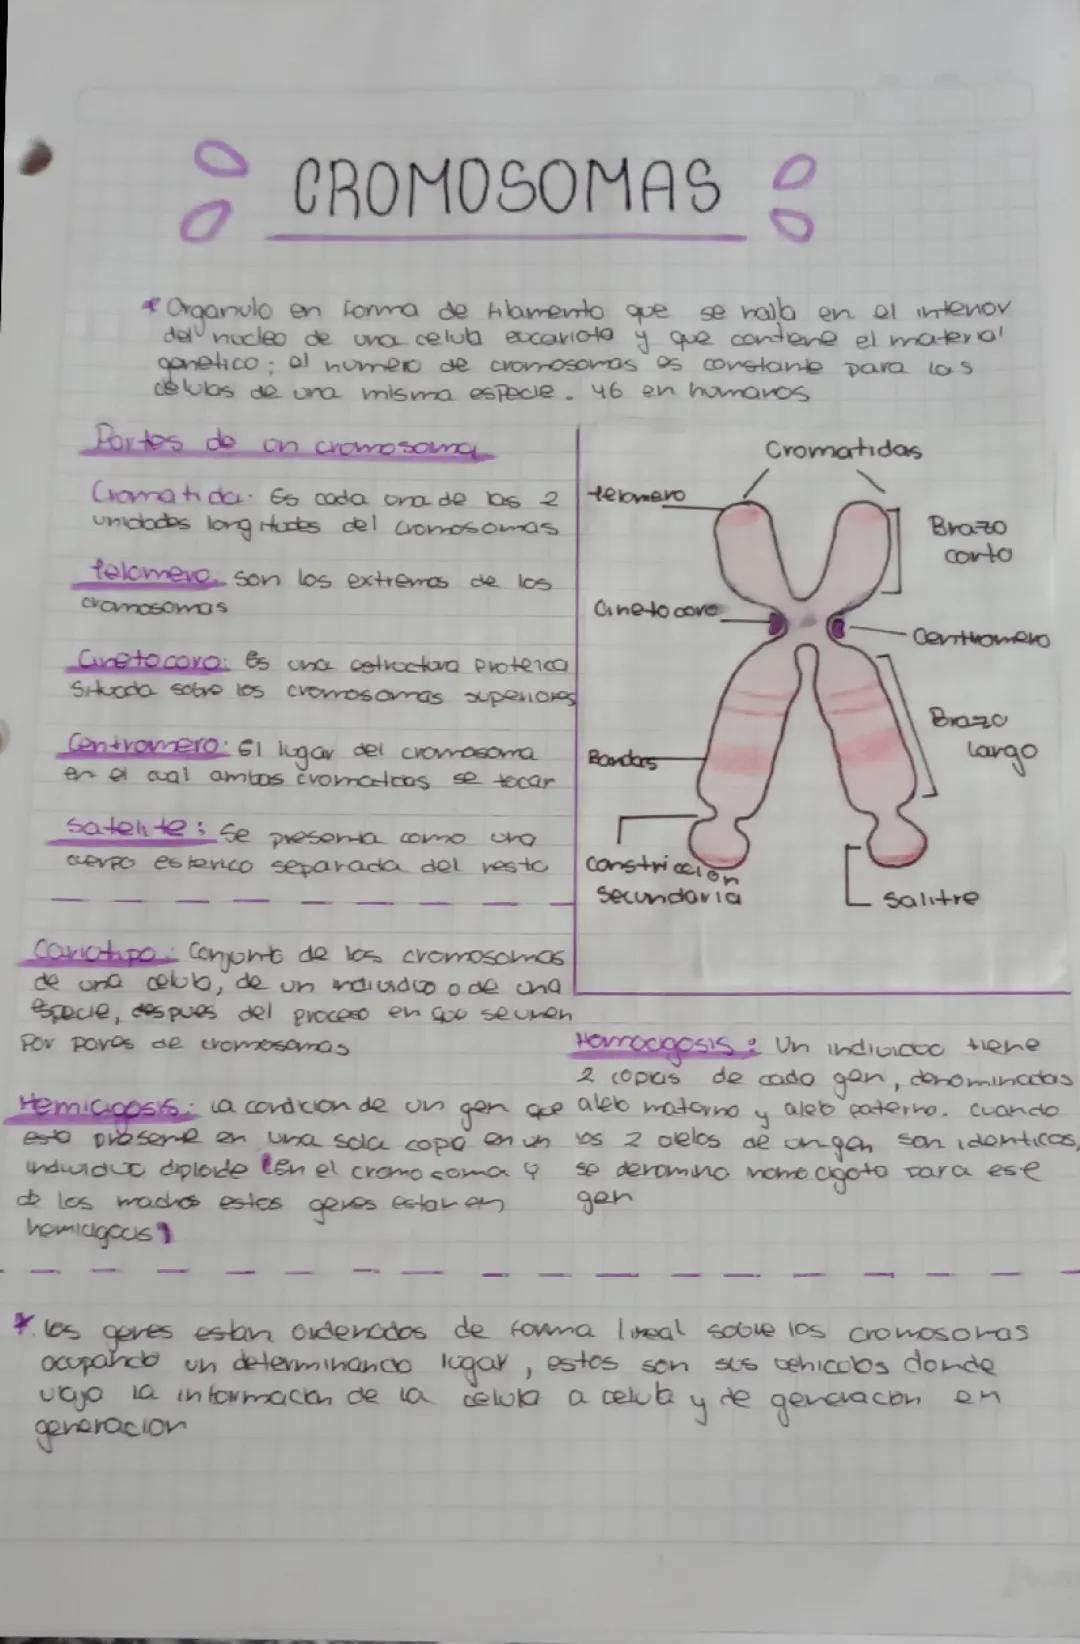 CROMOSOMAS
* Organulo en forma de filamento que se halla en el interior
del nucleo de una celula eucariota y que contiene el material
genetico; el numero de cromosomas es constante para las
celulas de una misma especie. 46 en humanos
Partes de un cromosoma
Cromatida: Es cada una de las 2
unidades longitudes del cromosomas
telomero: son los extremos de los
cromosomas
Cinetocoro: Es una estructura proteica
Situada sobre los cromosomas superiores
Centromero: El lugar del cromosoma
en el cual ambas cromaticas se tocar
Satelite: Se presenta como una
cuerpo esferico separada del resto
Cromatidas
telomero
Brazo
corto
Cinetocoro
Centromero
Brazo
largo
Bandas
constriccion
Secundaria
Salitre
Cariotipo: Conjunto de los cromosomas
de una celula, de un individuo o de una
Especie, despues del proceso en que se unen
Por pares de cromosomas
Hemicigosis: La condicion de un gen que
esta presente en una sola copia en un
individuo diploide (En el cromosoma y
de los machos estos genes estan en
hemicigosis)
Homocigosis: Un individuo tiene
2 copias de cada gen, denominadas
alelo materno y alelo paterno. Cuando
los 2 alelos de un gen son identicos,
se denomina homocigoto para ese
gen
* los genes estan ordenados de forma lineal sobre los cromosomas
ocupando un determinando lugar, estos son sus vehiculos donde
viaja la informacion de la celula a celula y de generacion en
generacion